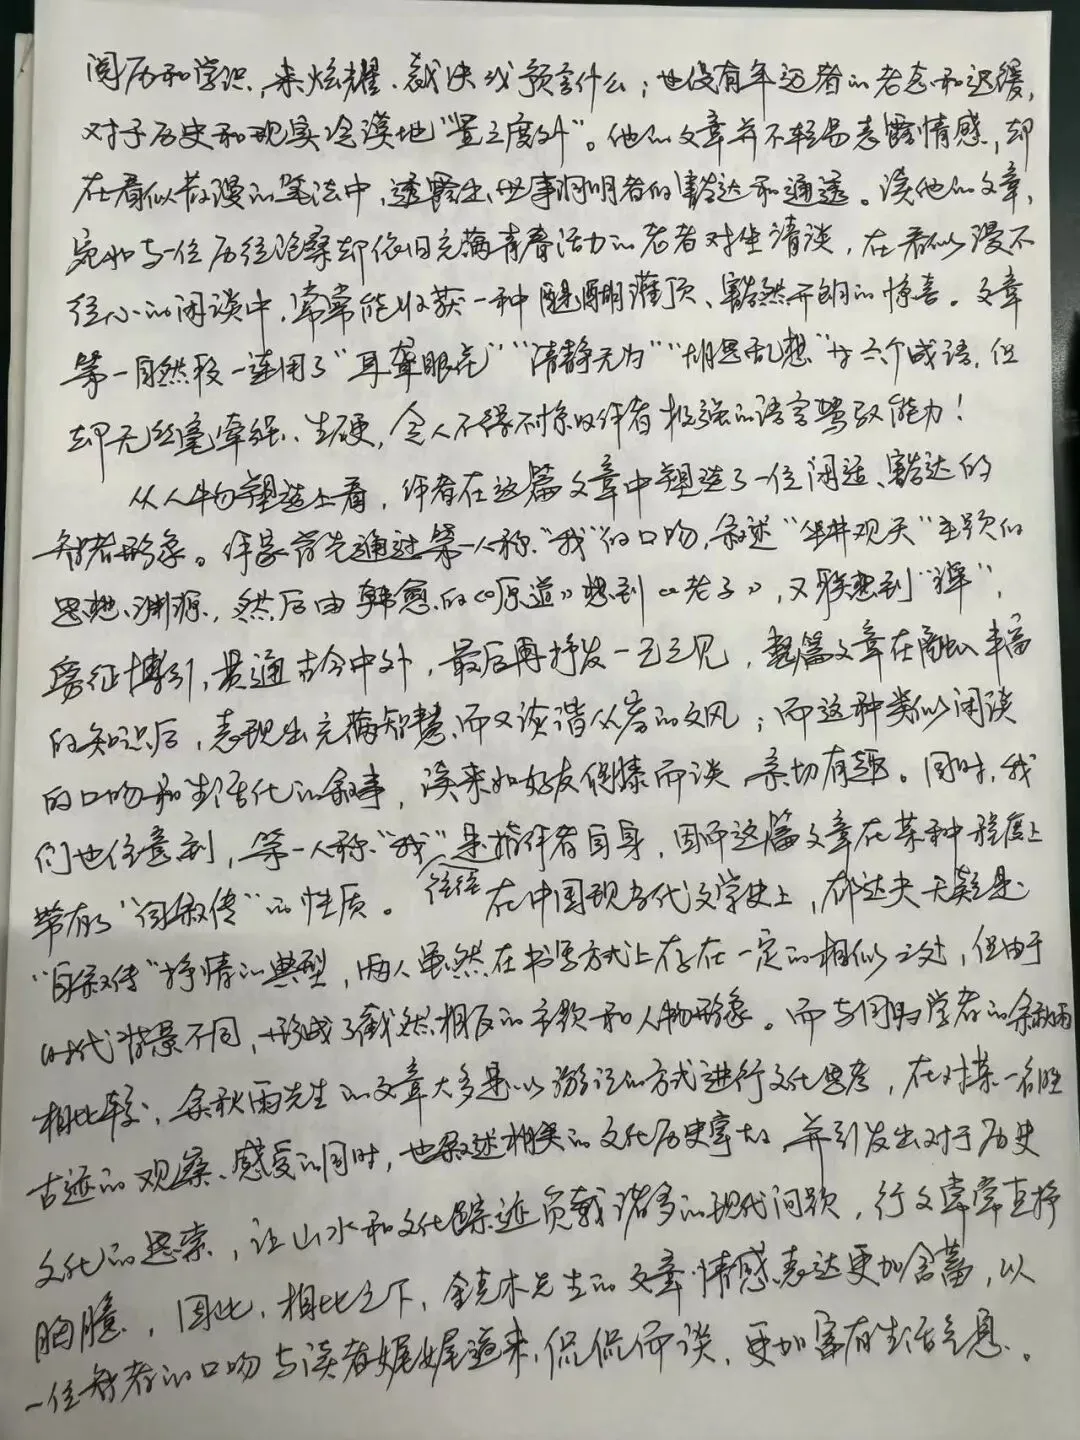 阅历和学识，来炫耀、裁决或预言什么；也没有年迈者的老态和迟缓，
对于历史和现实冷漠地“置之度外”。他的文章并不轻易表露情感，却
在看似散漫的笔法中，透露出世事洞明者的豁达和通透。读他的文章，
宛如与一位历经沧桑却依旧充满青春活力的老者对坐清谈，在看似漫不
经心的闲谈中，常常能收获一种醍醐灌顶、豁然开朗的惊喜。文章
第一自然段一连用了“耳聋眼花”“清静无为”“胡思乱想”等六个成语，但
却无丝毫牵强、生硬，令人不得不惊叹作者极强的语言驾驭能力！
从人物塑造上看，作者在这篇文章中塑造了一位闲适、豁达的
智者形象。作家首先通过第一人称“我”的口吻，叙述“坐井观天”主题的
思想渊源，然后由韩愈的《原道》想到《老子》，又联想到“禅”，
旁征博引，贯通古今中外，最后再抒发一己之见，整篇文章在融入丰富
的知识后，表现出充满智慧而又诙谐从容的文风；而这种类似闲谈
的口吻和生活化的叙事，读来如好友促膝而谈，亲切有趣。同时，我
们也注意到，第一人称“我”往往是指作者自身，因而这篇文章在某种程度上
带有了“自叙传”的性质。在中国现当代文学史上，郁达夫无疑是
“自叙传”抒情的典型，两人虽然在书写方式上存在一定的相似之处，但由于
时代背景不同，形成了截然相反的主题和人物形象。而与同为学者的余秋雨
相比较，余秋雨先生的文章大多是以游记的方式进行文化思考，在对某一名胜
古迹的观察、感受的同时，也叙述相关的文化历史掌故，并引发出对于历史
文化的思索，让山水和文化踪迹负载诸多的现代问题，行文常常直抒
胸臆，因此，相比之下，金克木先生的文章情感表达更加含蓄，以
一位智者的口吻与读者娓娓道来、侃侃而谈，更加富有生活气息。